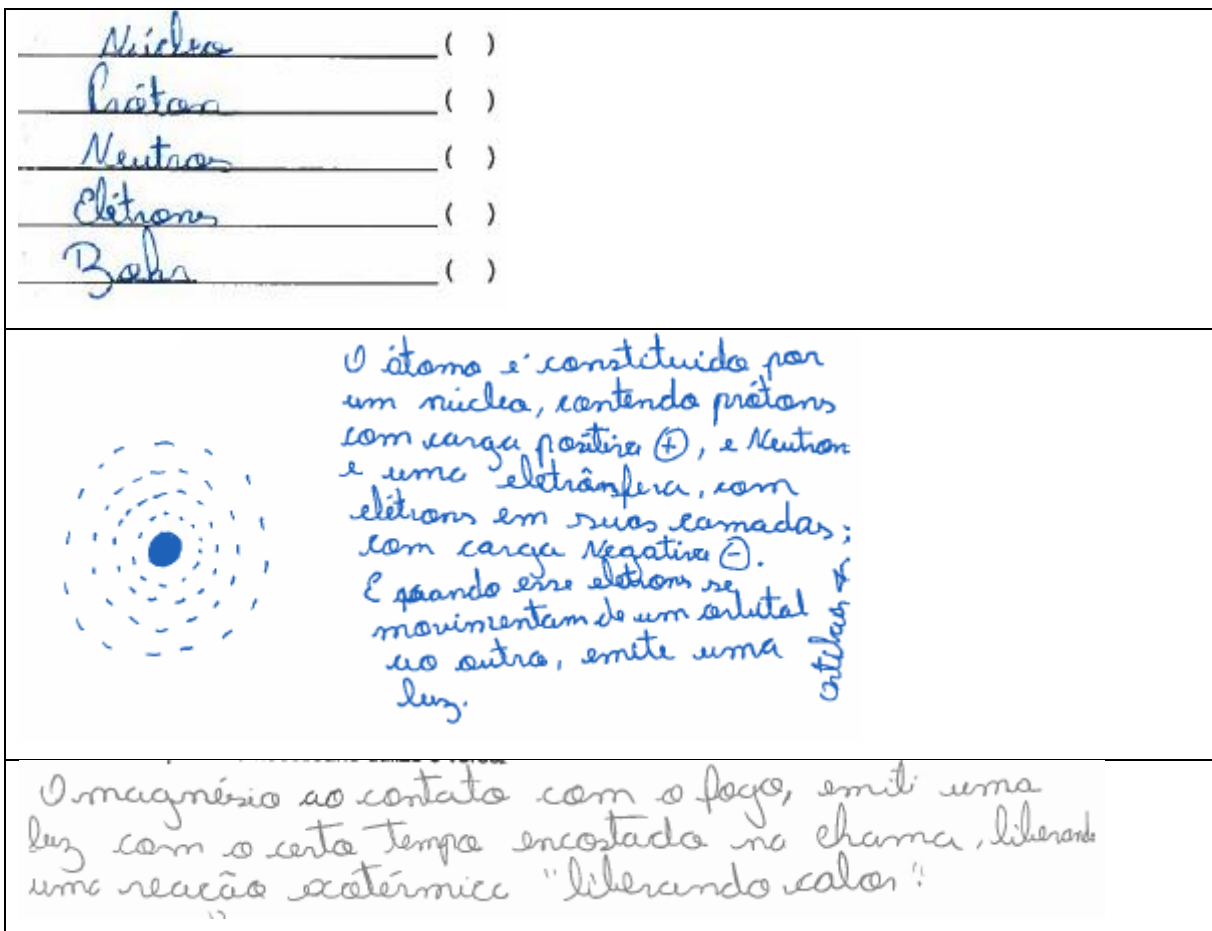 Núcleo ( )
Próton ( )
Neutros ( )
Elétrons ( )
Bohr ( )
O átomo é constituido por
um núcleo, contendo prótons
com carga positiva ⊕, e Neutron
e uma eletrânsfera, com
elétrons em suas camadas;
com carga Negativa ⊖.
E quando esse eletrons se
movimentam de um orbital
ao outro, emite uma
luz.
O magnésio ao contato com o fogo, emiti uma
luz com o certo tempo encostado na chama, liberando
uma reação exotérmica "liberando calor".